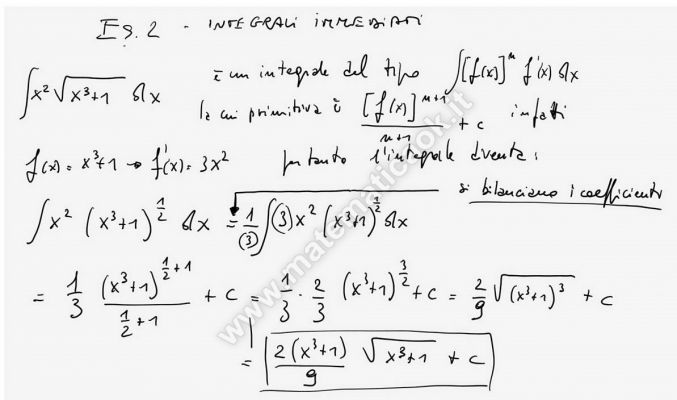 Es. 2 - INTEGRALI IMMEDIATI
∫x² √(x³+1) dx è un integrale del tipo ∫[f(x)]ⁿ f'(x) dx
la cui primitiva è [f(x)]ⁿ⁺¹/(n+1) + c infatti
f(x) = x³+1 → f'(x) = 3x² pertanto l'integrale diventa:
si bilanciano i coefficienti
∫x² (x³+1)^(1/2) dx = 1/(3) ∫(3)x² (x³+1)^(1/2) dx
= 1/3 (x³+1)^(1/2+1)/(1/2+1) + c = 1/3 · 2/3 (x³+1)^(3/2) + c = 2/9 √((x³+1)³) + c
= 2(x³+1)/9 √(x³+1) + c
www.matematicaok.it